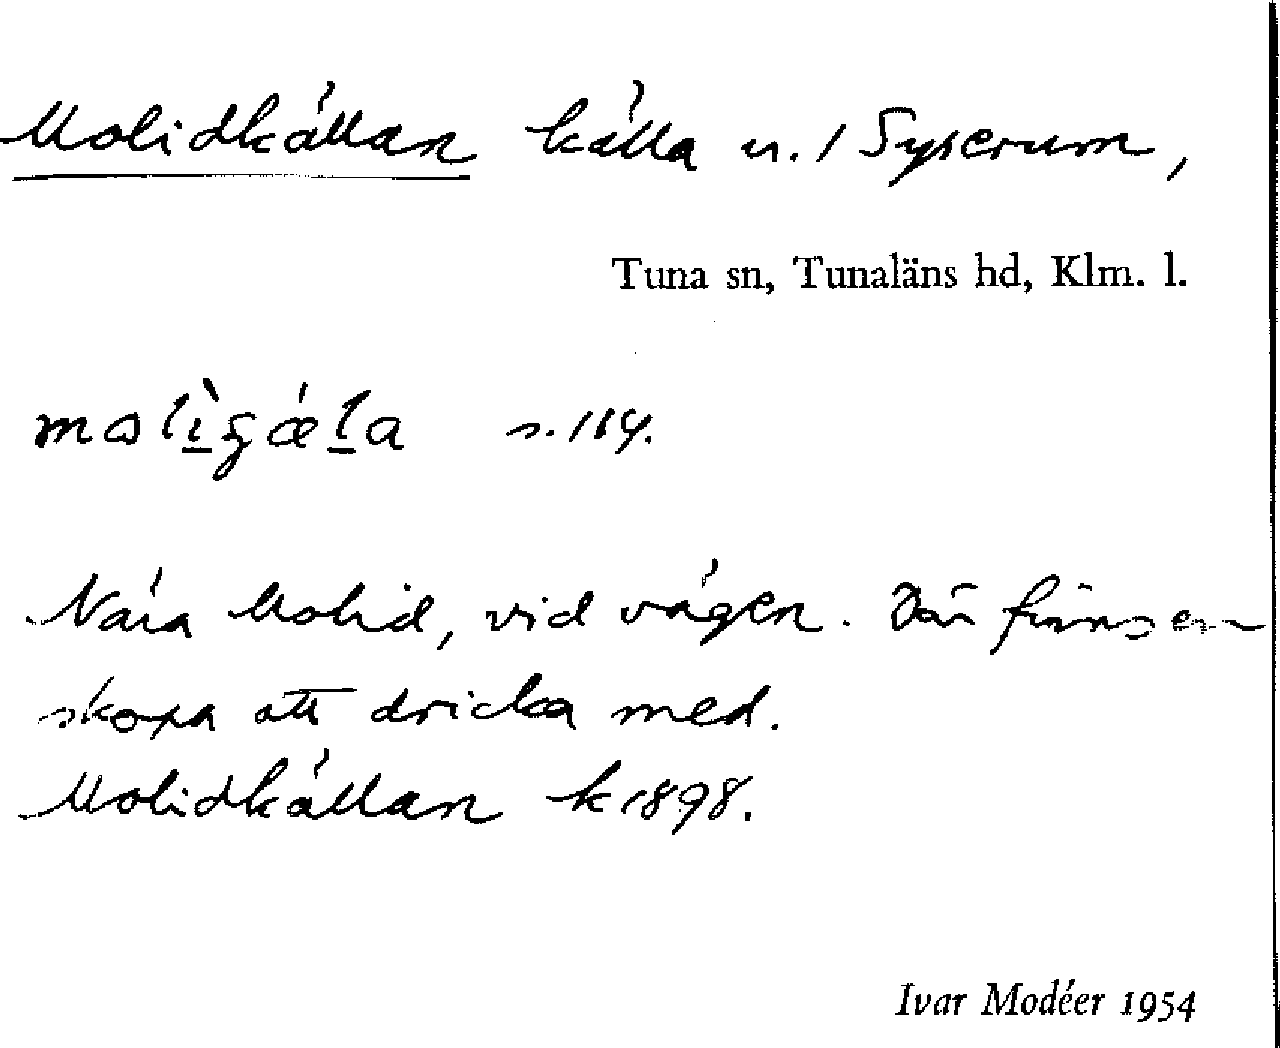 Molidkällan källa u. / Syserum,
Tuna sn, Tunaläns hd, Klm. l.
s. 164.
Nära Molid, vid vägen. Där finns en
skopa att dricka med.
Molidkällan k 1898.
Ivar Modéer 1954